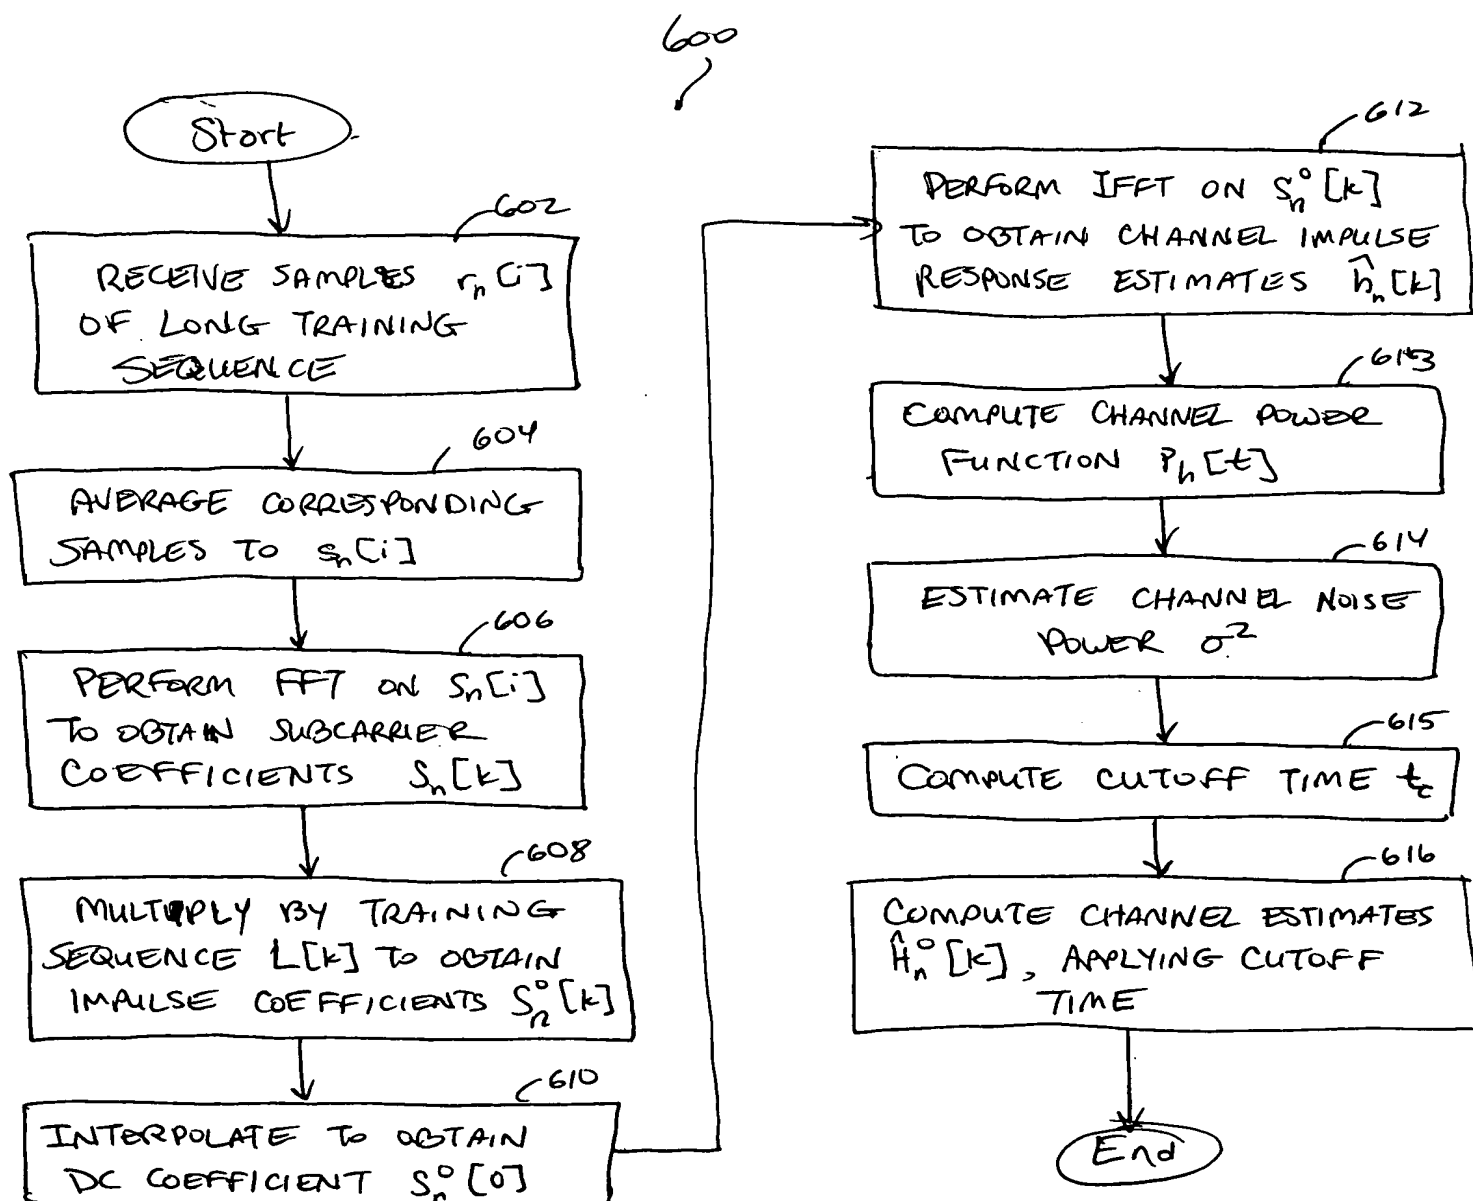 600
Start
602
RECEIVE SAMPLES rₙ[i]
OF LONG TRAINING
SEQUENCE
604
AVERAGE CORRESPONDING
SAMPLES TO sₙ[i]
606
PERFORM FFT ON Sₙ[i]
TO OBTAIN SUBCARRIER
COEFFICIENTS Sₙ[k]
608
MULTIPLY BY TRAINING
SEQUENCE L[k] TO OBTAIN
IMPULSE COEFFICIENTS Sₙ⁰[k]
610
INTERPOLATE TO OBTAIN
DC COEFFICIENT Sₙ⁰[0]
612
PERFORM IFFT ON Sₙ⁰[k]
TO OBTAIN CHANNEL IMPULSE
RESPONSE ESTIMATES ĥₙ[k]
613
COMPUTE CHANNEL POWER
FUNCTION Pₕ[t]
614
ESTIMATE CHANNEL NOISE
POWER σ²
615
COMPUTE CUTOFF TIME t_c
616
COMPUTE CHANNEL ESTIMATES
Ĥₙ⁰[k], APPLYING CUTOFF
TIME
End